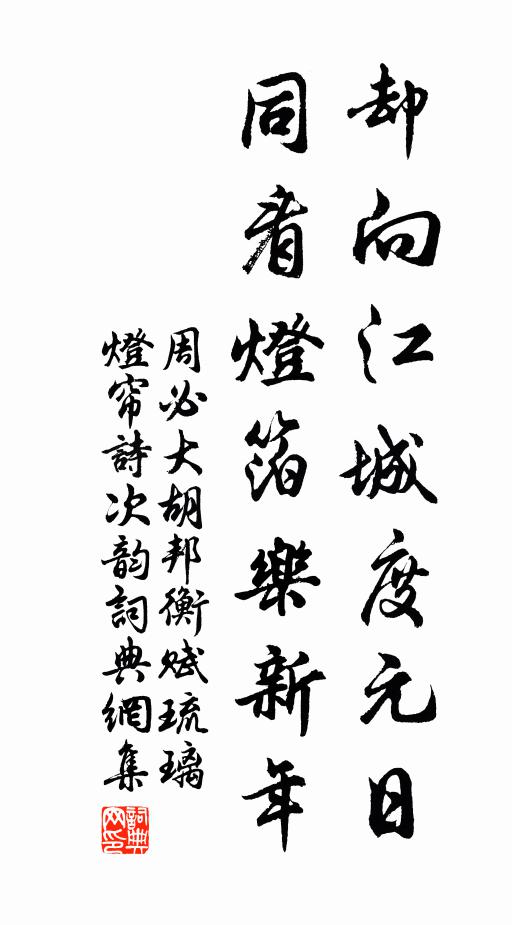 却向江城度元日
同看燈箔樂新年
周必大胡邦衡賦琉璃
燈帘詩次韵詞典網集
詞典
网印